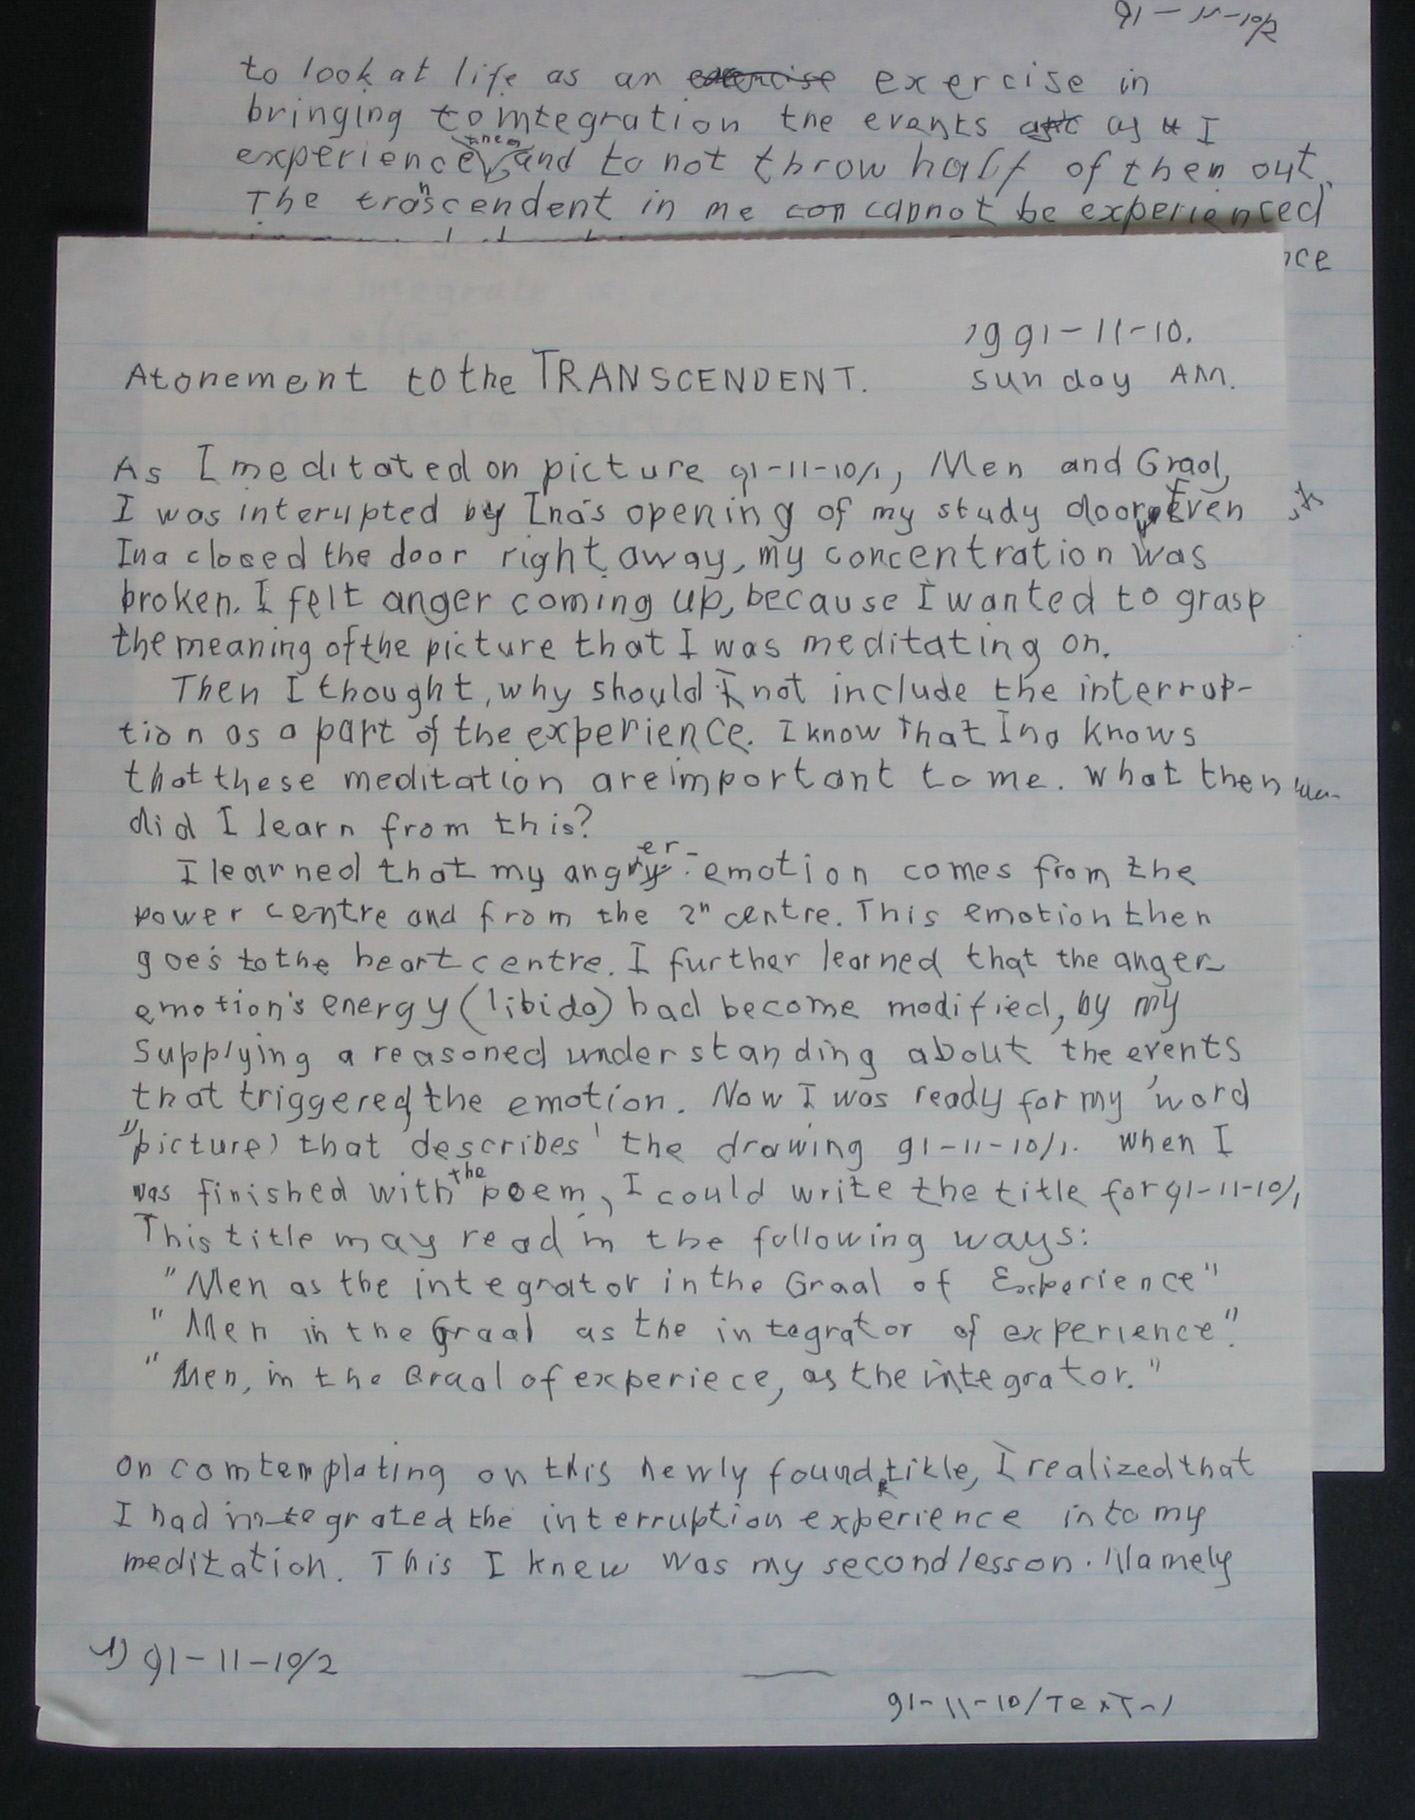 91-11-10/2
to look at life as an exercise exercise in
bringing to integration the events as I
them
experience, and to not throw half of them out.
The transcendent in me con cannot be experienced
nce
1991-11-10.
Atonement to the TRANSCENDENT. Sunday AM.
As I meditated on picture 91-11-10/1, Men and Graal,
I was interupted by Ina's opening of my study door. Even
Ina closed the door right away, my concentration was
broken. I felt anger coming up, because I wanted to grasp
the meaning of the picture that I was meditating on.
Then I thought, why should I not include the interrup-
tion as a part of the experience. I know that Ina knows
that these meditation are important to me. What then
did I learn from this?
er-
I learned that my angry emotion comes from the
power centre and from the 2n centre. This emotion then
goes to the heart centre. I further learned that the anger-
emotion's energy (libido) had become modified, by my
supplying a reasoned understanding about the events
that triggered the emotion. Now I was ready for my 'word
picture) that 'describes' the drawing 91-11-10/1. When I
was finished with the poem, I could write the title for 91-11-10/1
This title may read in the following ways:
"Men as the integrator in the Graal of Experience"
"Men in the Graal as the integrator of experience".
"Men, in the Graal of experiece, as the integrator."
On comtemplating on this newly found title, I realized that
I had integrated the interruption experience into my
meditation. This I knew was my second lesson. Namely
1) 91-11-10/2
91-11-10/Text-1